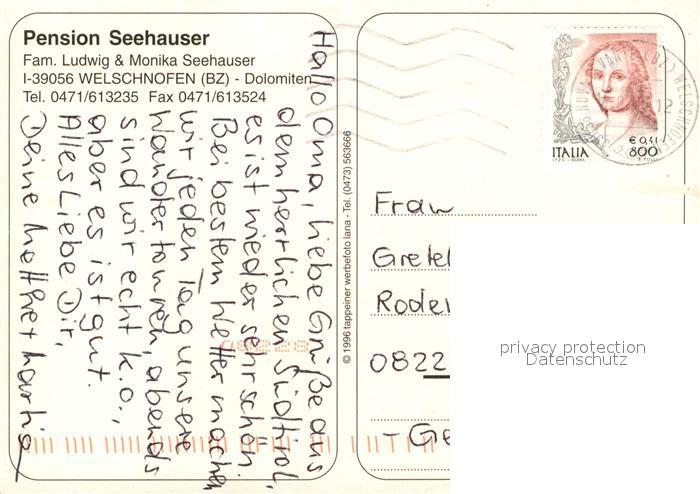 Pension Seehauser
Fam. Ludwig & Monika Seehauser
I-39056 WELSCHNOFEN (BZ) - Dolomiten
Tel. 0471/613235 Fax 0471/613524
Hallo Oma, liebe Grüße aus
dem herrlichen Südtirol,
es ist wieder sehr schön.
Bei bestem Wetter machen
wir jeden Tag unsere
Wandertouren, abends
sind wir echt k.o.,
aber es ist gut.
Alles Liebe Dir,
Deine
© 1996 tappeiner werbefoto lana - Tel. (0473) 563666
ITALIA
€ 0,41
800
Frau
Gretel
Roder
0822
- Ge
privacy protection
Datenschutz